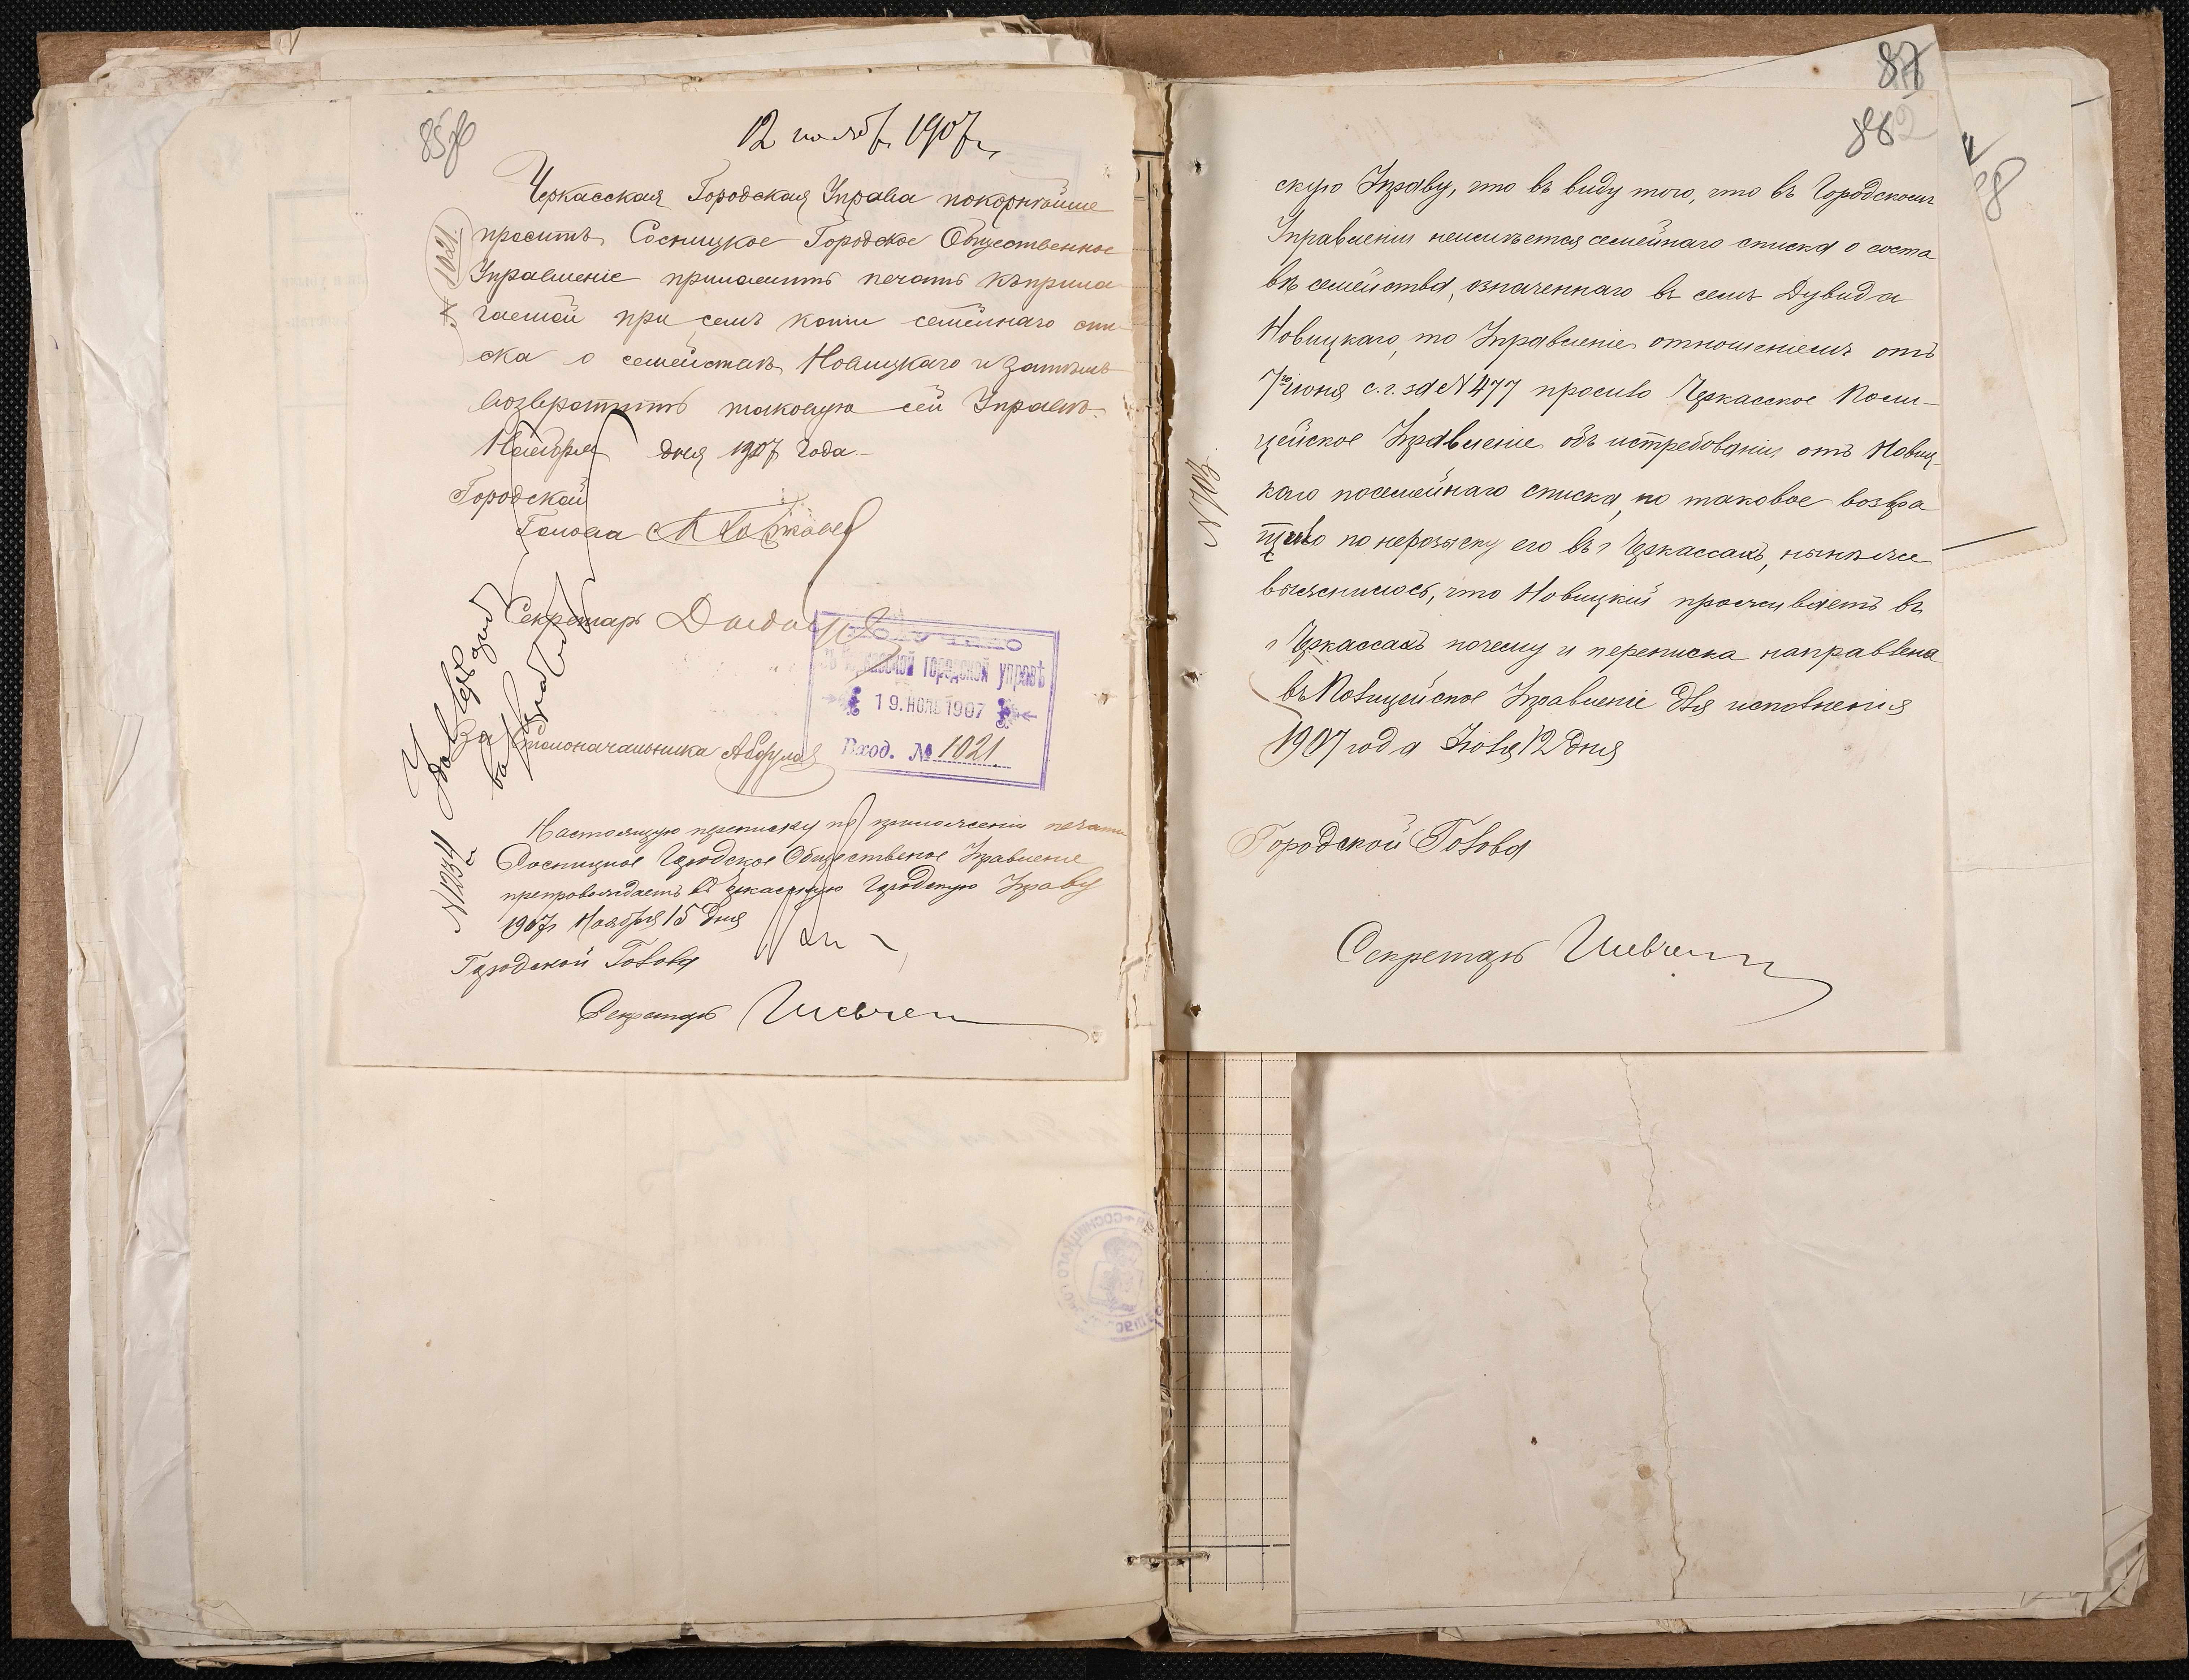 85об
12 нояб. 1907 г.
Черкасская Городская Управа покорнѣйше
проситъ Сосницкое Городское Общественное
Управленіе приложить печать къ прила
гаемой при семъ копіи семейнаго спи
ска о семействѣ Новицкаго и затѣмъ
возвратить таковую сей Управѣ.
Ноября дня 1907 года
Городской
Голова
Секретарь
№ 1021
Столоначальника
въ Черкасской городской управѣ
19. НОЯБ 1907
Вход. № 1021
Настоящую переписку по приложеніи печати
Сосницкое Городское Общественое Управленіе
препровождаетъ въ Черкасскую Городскую Управу
1907 г Ноября 15 дня
№ 1234
Городской Голова
Секретарь
87
882
скую Управу, что въ виду того, что въ Городскомъ
Управленіи неимѣется семейнаго списка о соста
вѣ семейства, означеннаго въ семъ Дувида
Новицкаго, то Управленіе отношеніемъ отъ
7го іюня с.г. за № 477 просило Черкасское Поли-
цейское Управленіе объ истребованіи отъ Новиц-
каго посемейнаго списка, но таковое возвра
тило по нерозыску его въ г Черкассахъ, нынѣ же
выяснилось, что Новицкій проживаетъ въ
г Черкассахъ почему и переписка направлена
въ Полицейское Управленіе для исполненія
1907 года Іюля 12 дня
№ 713
Городской Голова
Секретарь